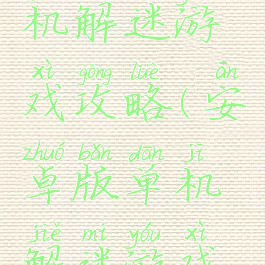 机解迷游
xì gōng lüè ān
戏攻略(安
zhuó bǎn dān jī
卓版单机
jiě mí yóu xì
解谜游戏